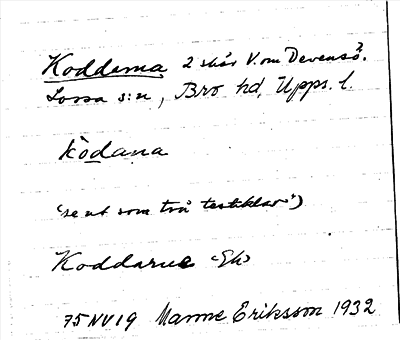 Koddarna 2 skär V. om Devensö.
Lossa s:n, Bro hd, Upps. l.
kòdana
(se ut som två testiklar)
Koddarne (Ek)
75 NV 19 Manne Eriksson 1932